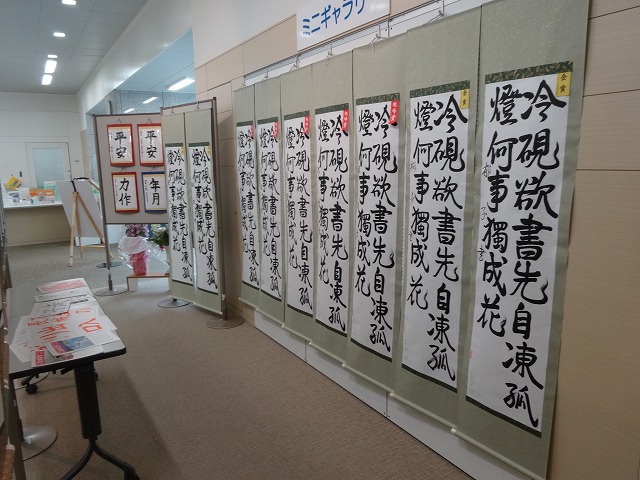 ミニギャラリ
平安
平安
力作
年月
冷硯欲書先自凍孤
燈何事獨成花
冷硯欲書先自凍孤
燈何事獨成花
冷硯欲書先自凍孤
燈何事獨成花
冷硯欲書先自凍孤
燈何事獨成花
冷硯欲書先自凍孤
燈何事獨成花
冷硯欲書先自凍孤
燈何事獨成花
冷硯欲書先自凍孤
燈何事獨成花
金賞
冷硯欲書先自凍孤
燈何事獨成花
金賞
冷硯欲書先自凍孤
燈何事獨成花